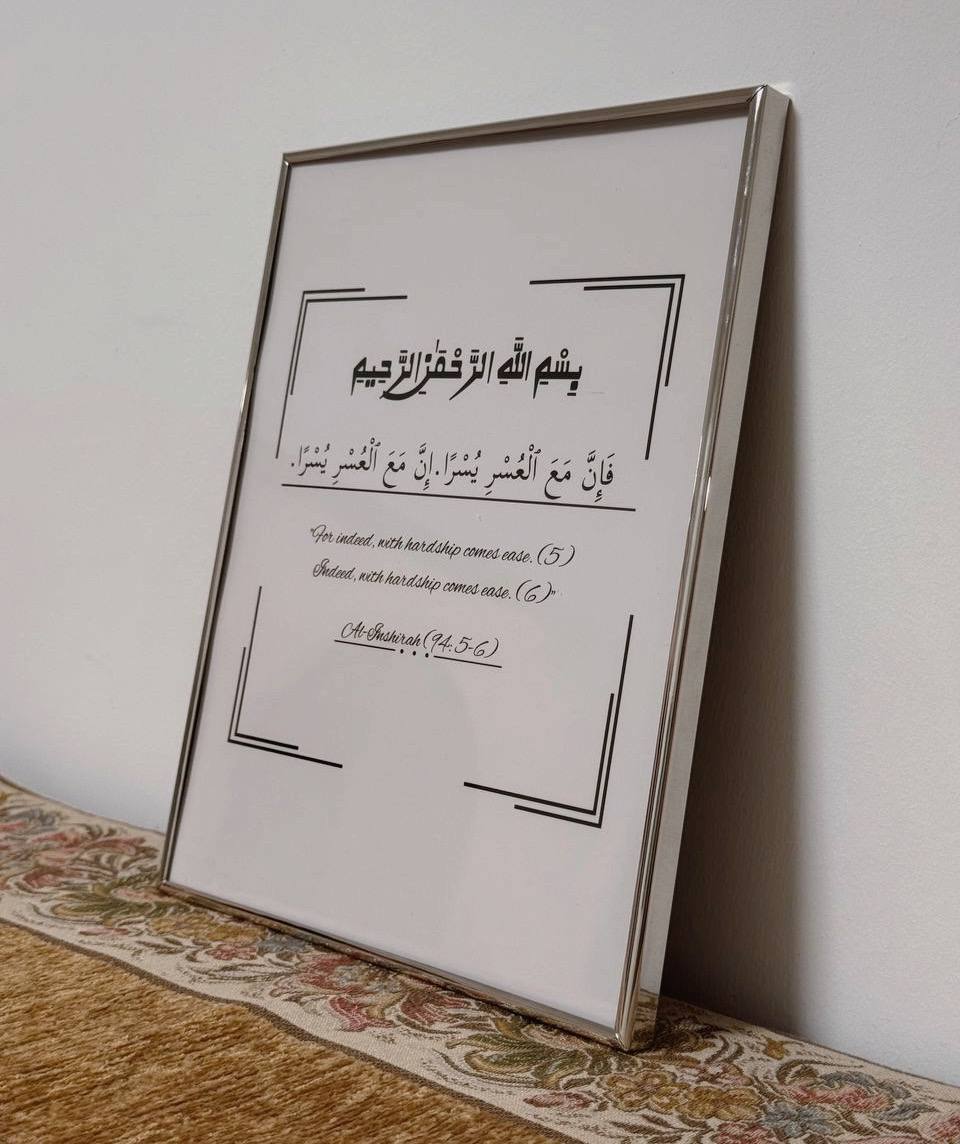 بِسْمِ اللَّهِ الرَّحْمَٰنِ الرَّحِيمِ
فَإِنَّ مَعَ ٱلْعُسْرِ يُسْرًا.إِنَّ مَعَ ٱلْعُسْرِ يُسْرًا.
"For indeed, with hardship comes ease. (5)
Indeed, with hardship comes ease. (6)"
Al-Inshirah (94: 5-6)